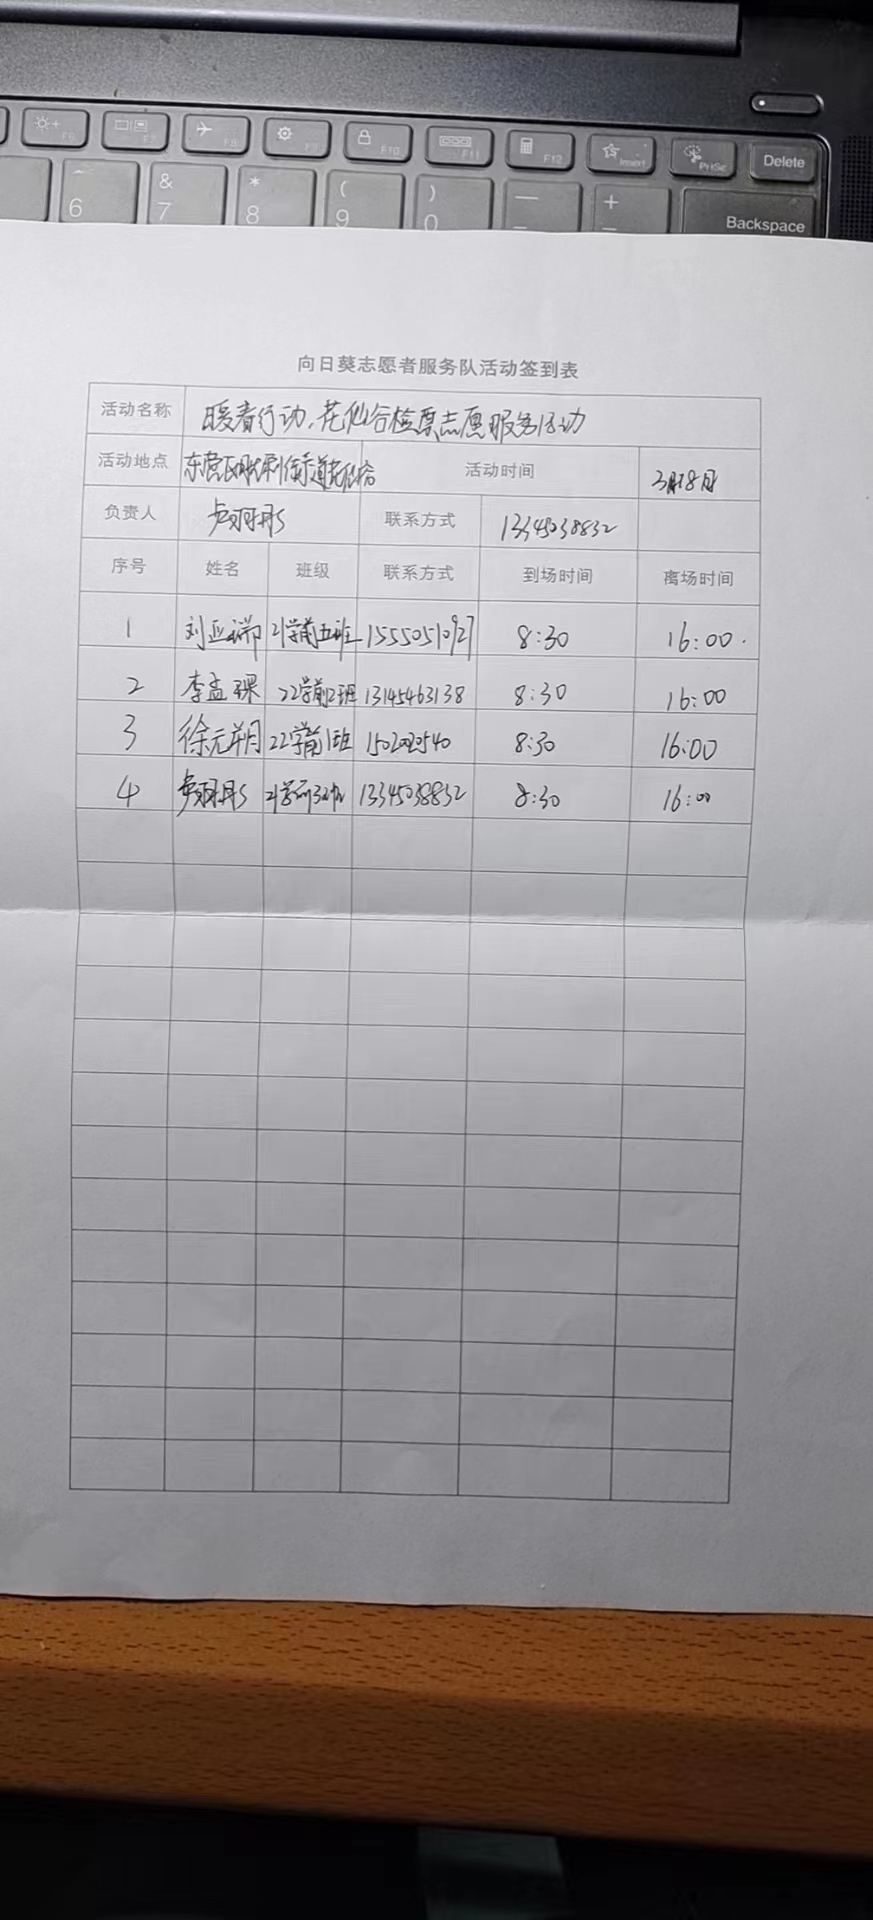 F6 F7 F8 F9 F10 F11 F12 Insert PrtSc Delete
6 & 7 * 8 ( 9 ) 0 — + Backspace
向日葵志愿者服务队活动签到表
活动名称 暖春行动,花仙谷检票志愿服务活动
活动地点 东营区 街道 活动时间 3月18日
负责人 联系方式 13345038832
序号 姓名 班级 联系方式 到场时间 离场时间
1 刘亚 21学前五班 15550510927 8:30 16:00
2 李孟 22学前2班 13145463138 8:30 16:00
3 徐元 22学前1班 8:30 16:00
4 13345038832 8:30 16:00